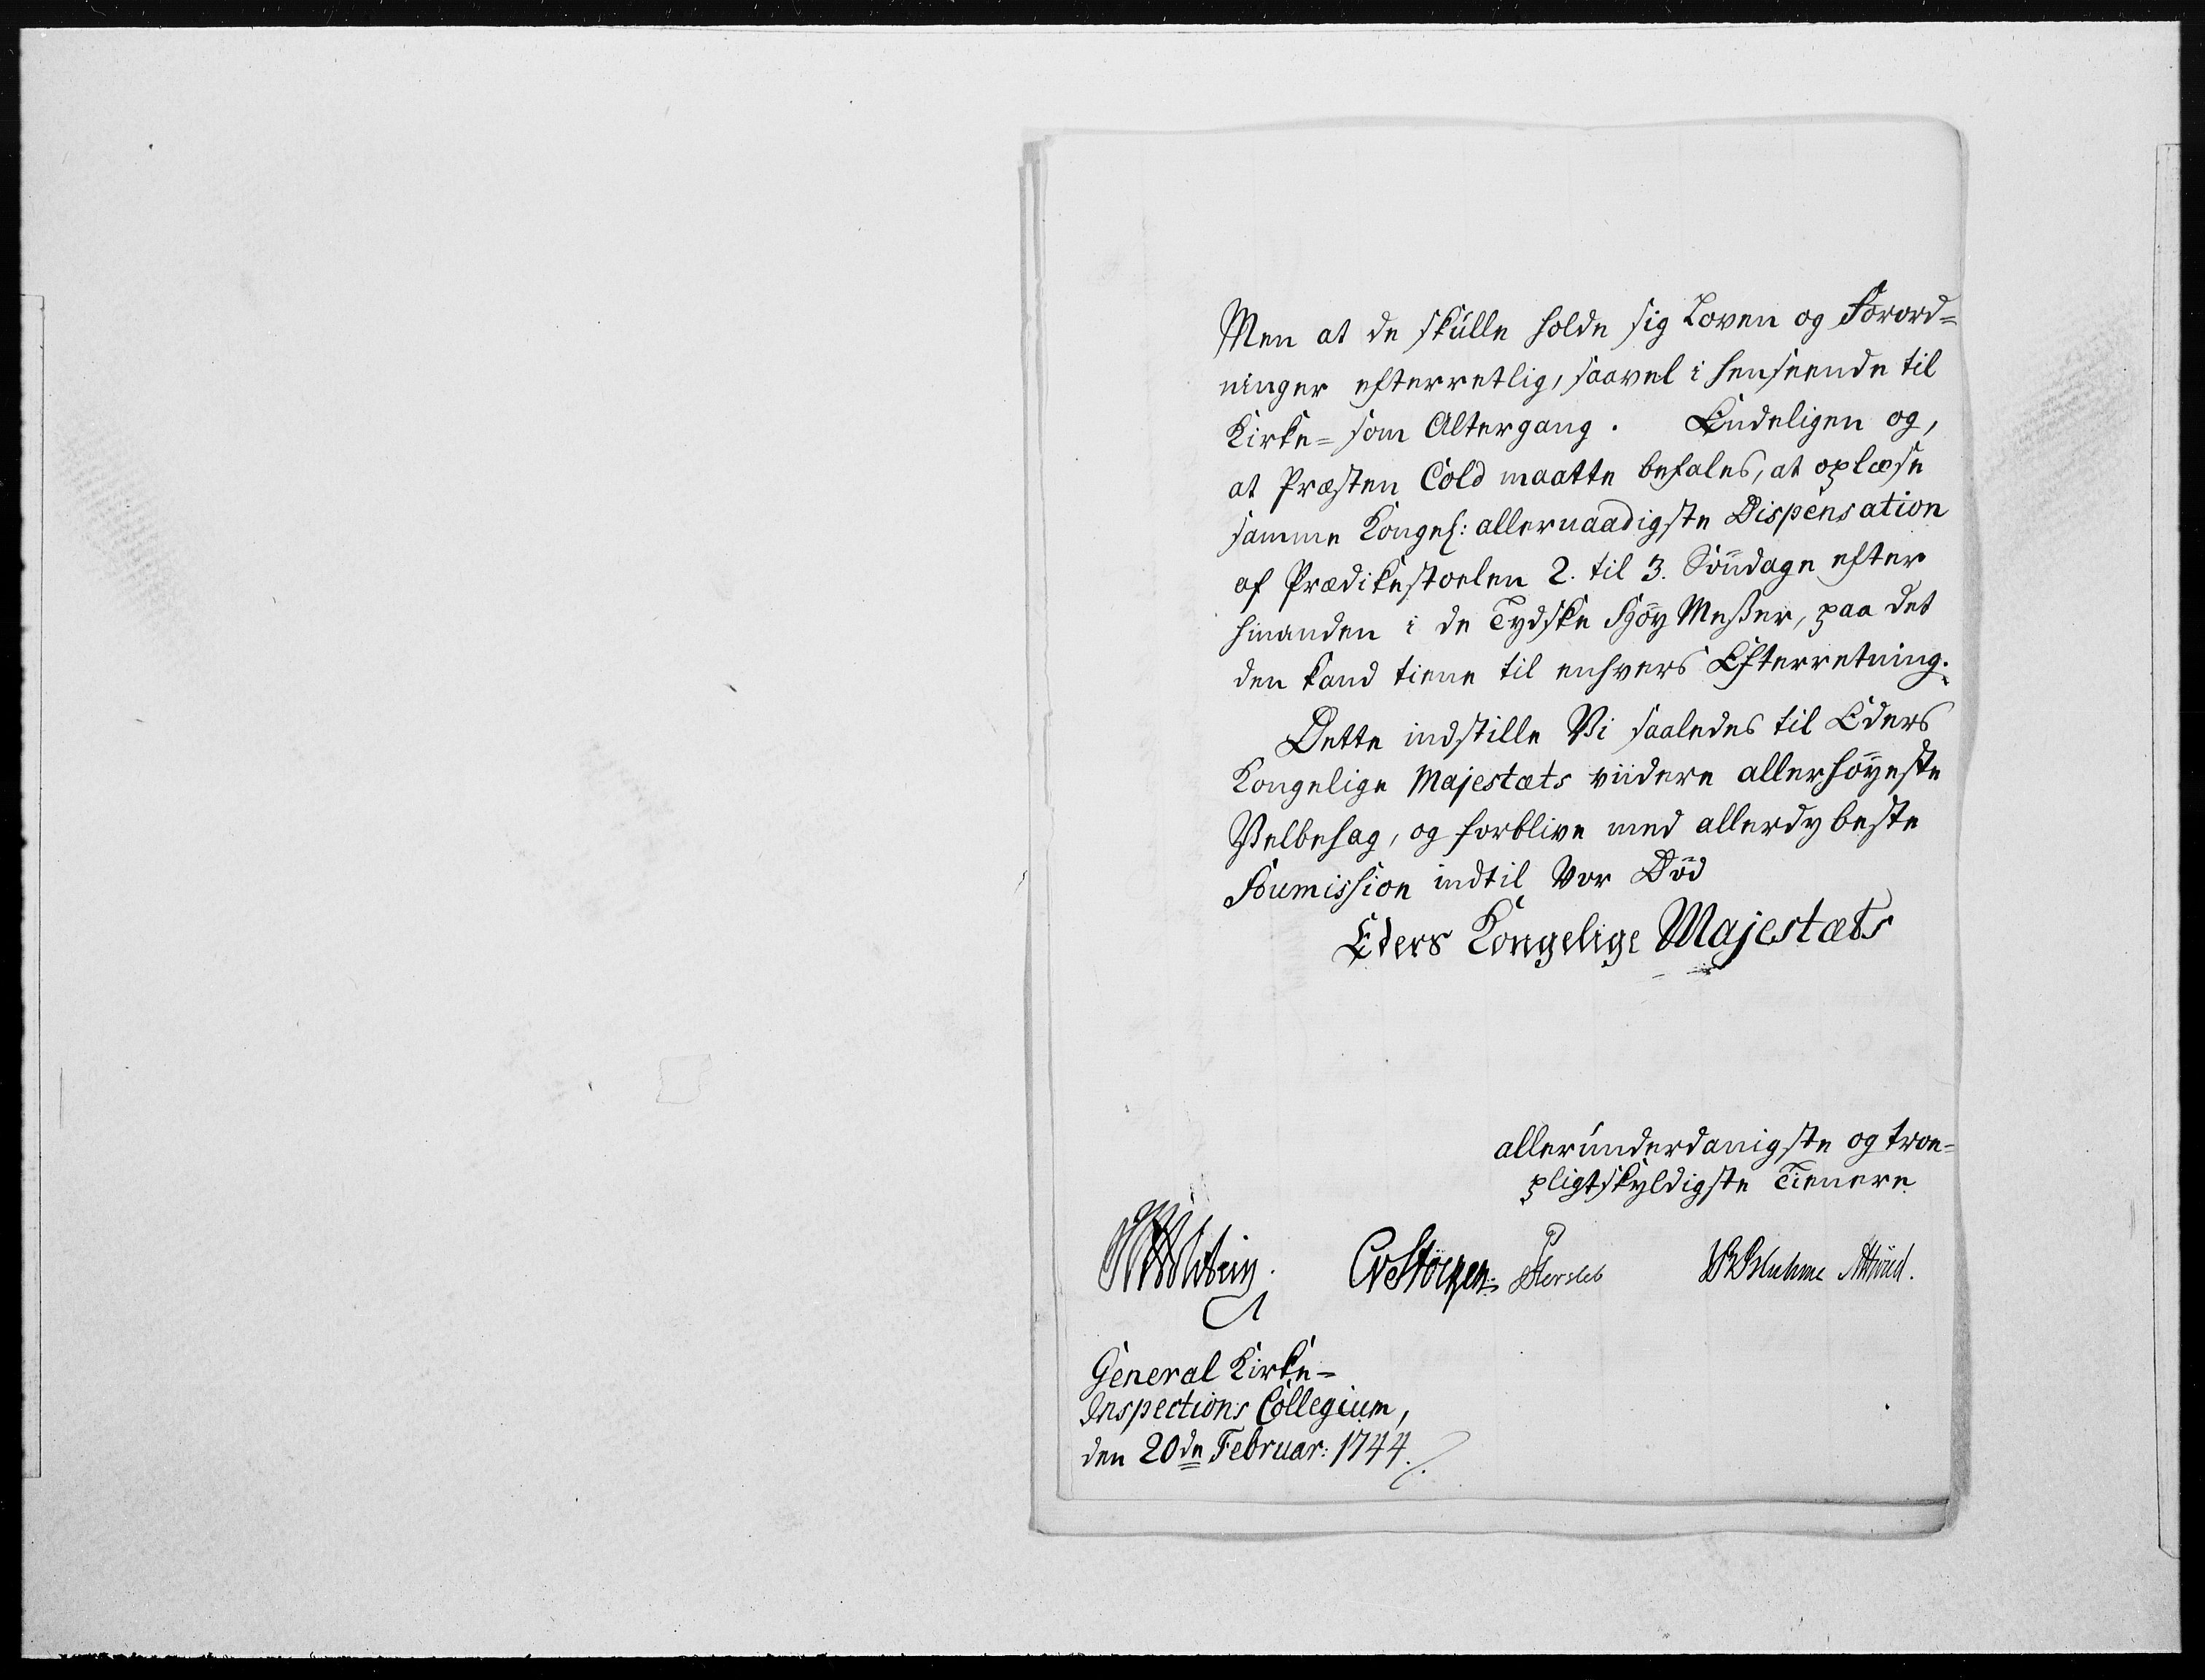 Men at de skulle holde sig Loven og Forord=
ninger efterretlig, saavel i henseende til
Kirke= som Altergang. Endeligen og,
at Præsten Cold maatte befales, at oplæse
samme Kongel: allernaadigste Dispensation
af Prædikestoelen 2. til 3. Söndage efter
hinanden i de Tydske Höy Messer, paa det
den kand tiene til enhvers Efterretning.
Dette indstille Vi saaledes til Eders
Kongelige Majestæts viidere allerhöyeste
Velbehag, og forblive med allerdybeste
Soumission indtil Vor Död
Eders Kongelige Majestæts
allerunderdanigste og troe=
pligtskyldigste Tienere
P Hersleb
General Kirke=
Inspections Collegium,
den 20de Februar: 1744.